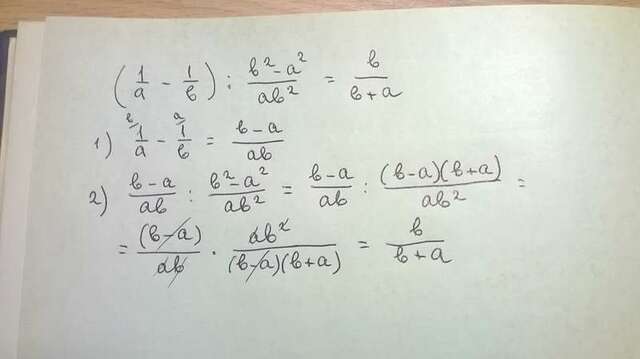 (1/a - 1/b) : (b² - a²)/(ab²) = b/(b + a)
1) ᵇ⁄1/a - ᵃ⁄1/b = (b - a)/(ab)
2) (b - a)/(ab) : (b² - a²)/(ab²) = (b - a)/(ab) : ((b - a)(b + a))/(ab²) =
= (b - a)/(ab) · (ab²)/((b - a)(b + a)) = b/(b + a)